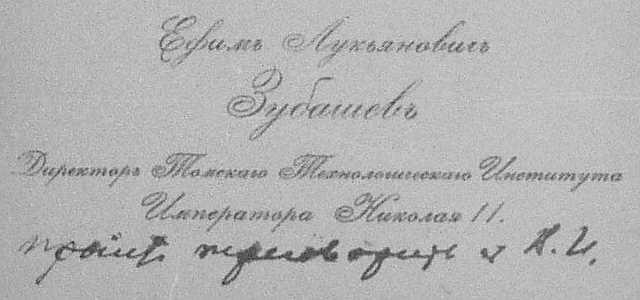 Ефимъ Лукьяновичъ
Зубашевъ
Директоръ Томскаго Технологическаго Института
Императора Николая II.
переговорить Н. И.